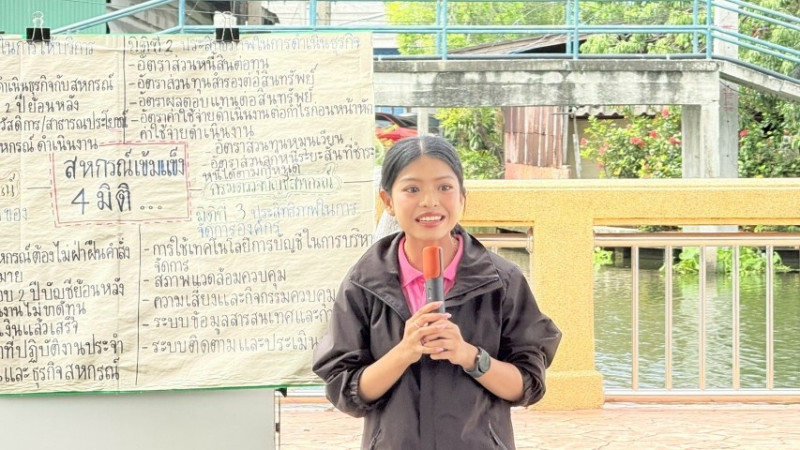 ในการให้บริการ
ดำเนินธุรกิจกับสหกรณ์
2 ปีย้อนหลัง
วัสดิการ/สาธารณประโยชน์
หกรณ์ ดำเนินงาน
สหกรณ์เข้มแข็ง
4 มิติ ...
ของ
หกรณ์ต้องไม่ฝ่าฝืนคำสั่ง
มาย
อบ 2 ปีบัญชีย้อนหลัง
งานไม่ขาดทุน
เงินแล้วเสร็จ
าที่ปฏิบัติงานประจำ
และธุรกิจสหกรณ์
มิติที่ 2 ประสิทธิภาพในการดำเนินธุรกิจ
- อัตราส่วนหนี้สินต่อทุน
- อัตราส่วนทุนสำรองต่อสินทรัพย์
- อัตราผลตอบแทนต่อสินทรัพย์
- อัตราค่าใช้จ่ายดำเนินงานต่อกำไรก่อนหัก
ค่าใช้จ่ายดำเนินงาน
- อัตราส่วนทุนหมุนเวียน
- อัตราส่วนลูกหนี้ระยะสั้นที่ชำระ
ได้ตามกำหนด
มิติที่ 3 ประสิทธิภาพในการ
จัดการองค์กร
- การใช้เทคโนโลยีการบัญชีในการบริหาร
จัดการ
- สภาพแวดล้อมควบคุม
- ความเสี่ยงและกิจกรรมควบคุม
- ระบบข้อมูลสารสนเทศและกา
- ระบบติดตามและประเมิน